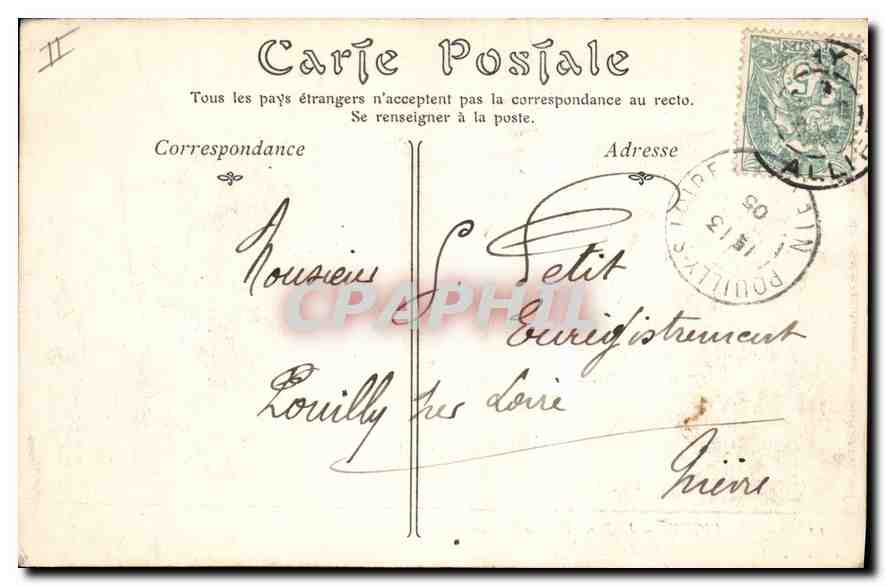 II
Carte Postale
Tous les pays étrangers n'acceptent pas la correspondance au recto.
Se renseigner à la poste.
Correspondance
Adresse
Monsieur G Petit
Enregistrement
Pouilly sur Loire
Nièvre
POUILLY-S-LOIRE
13
05
ALLIER
CPAPHIL